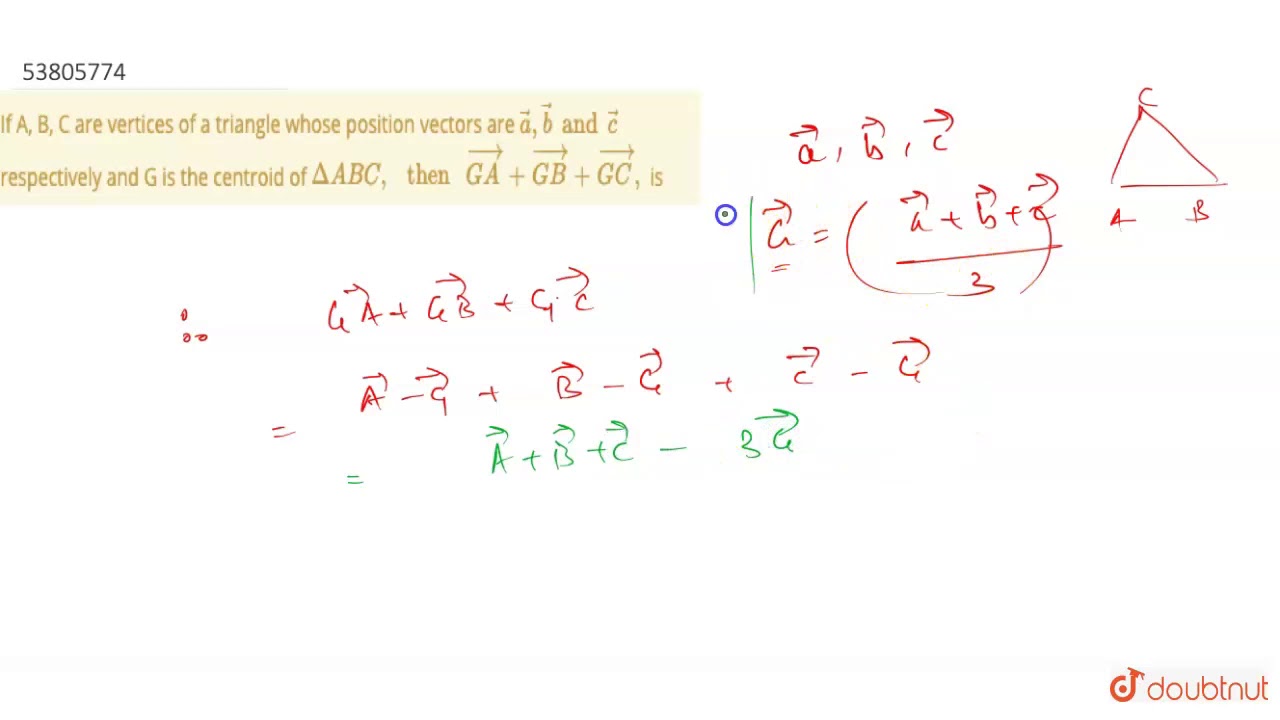 53805774
If A, B, C are vertices of a triangle whose position vectors are $\vec{a}, \vec{b}$ and $\vec{c}$
respectively and G is the centroid of $\Delta ABC,$ then $\overrightarrow{GA} + \overrightarrow{GB} + \overrightarrow{GC},$ is
$\vec{a}, \vec{b}, \vec{c}$
C
A B
$\vec{G} = \left(\frac{\vec{a} + \vec{b} + \vec{c}}{3}\right)$
∴ $\vec{GA} + \vec{GB} + \vec{GC}$
= $\vec{A} - \vec{G} + \vec{B} - \vec{G} + \vec{C} - \vec{G}$
= $\vec{A} + \vec{B} + \vec{C} - 3\vec{G}$
doubtnut